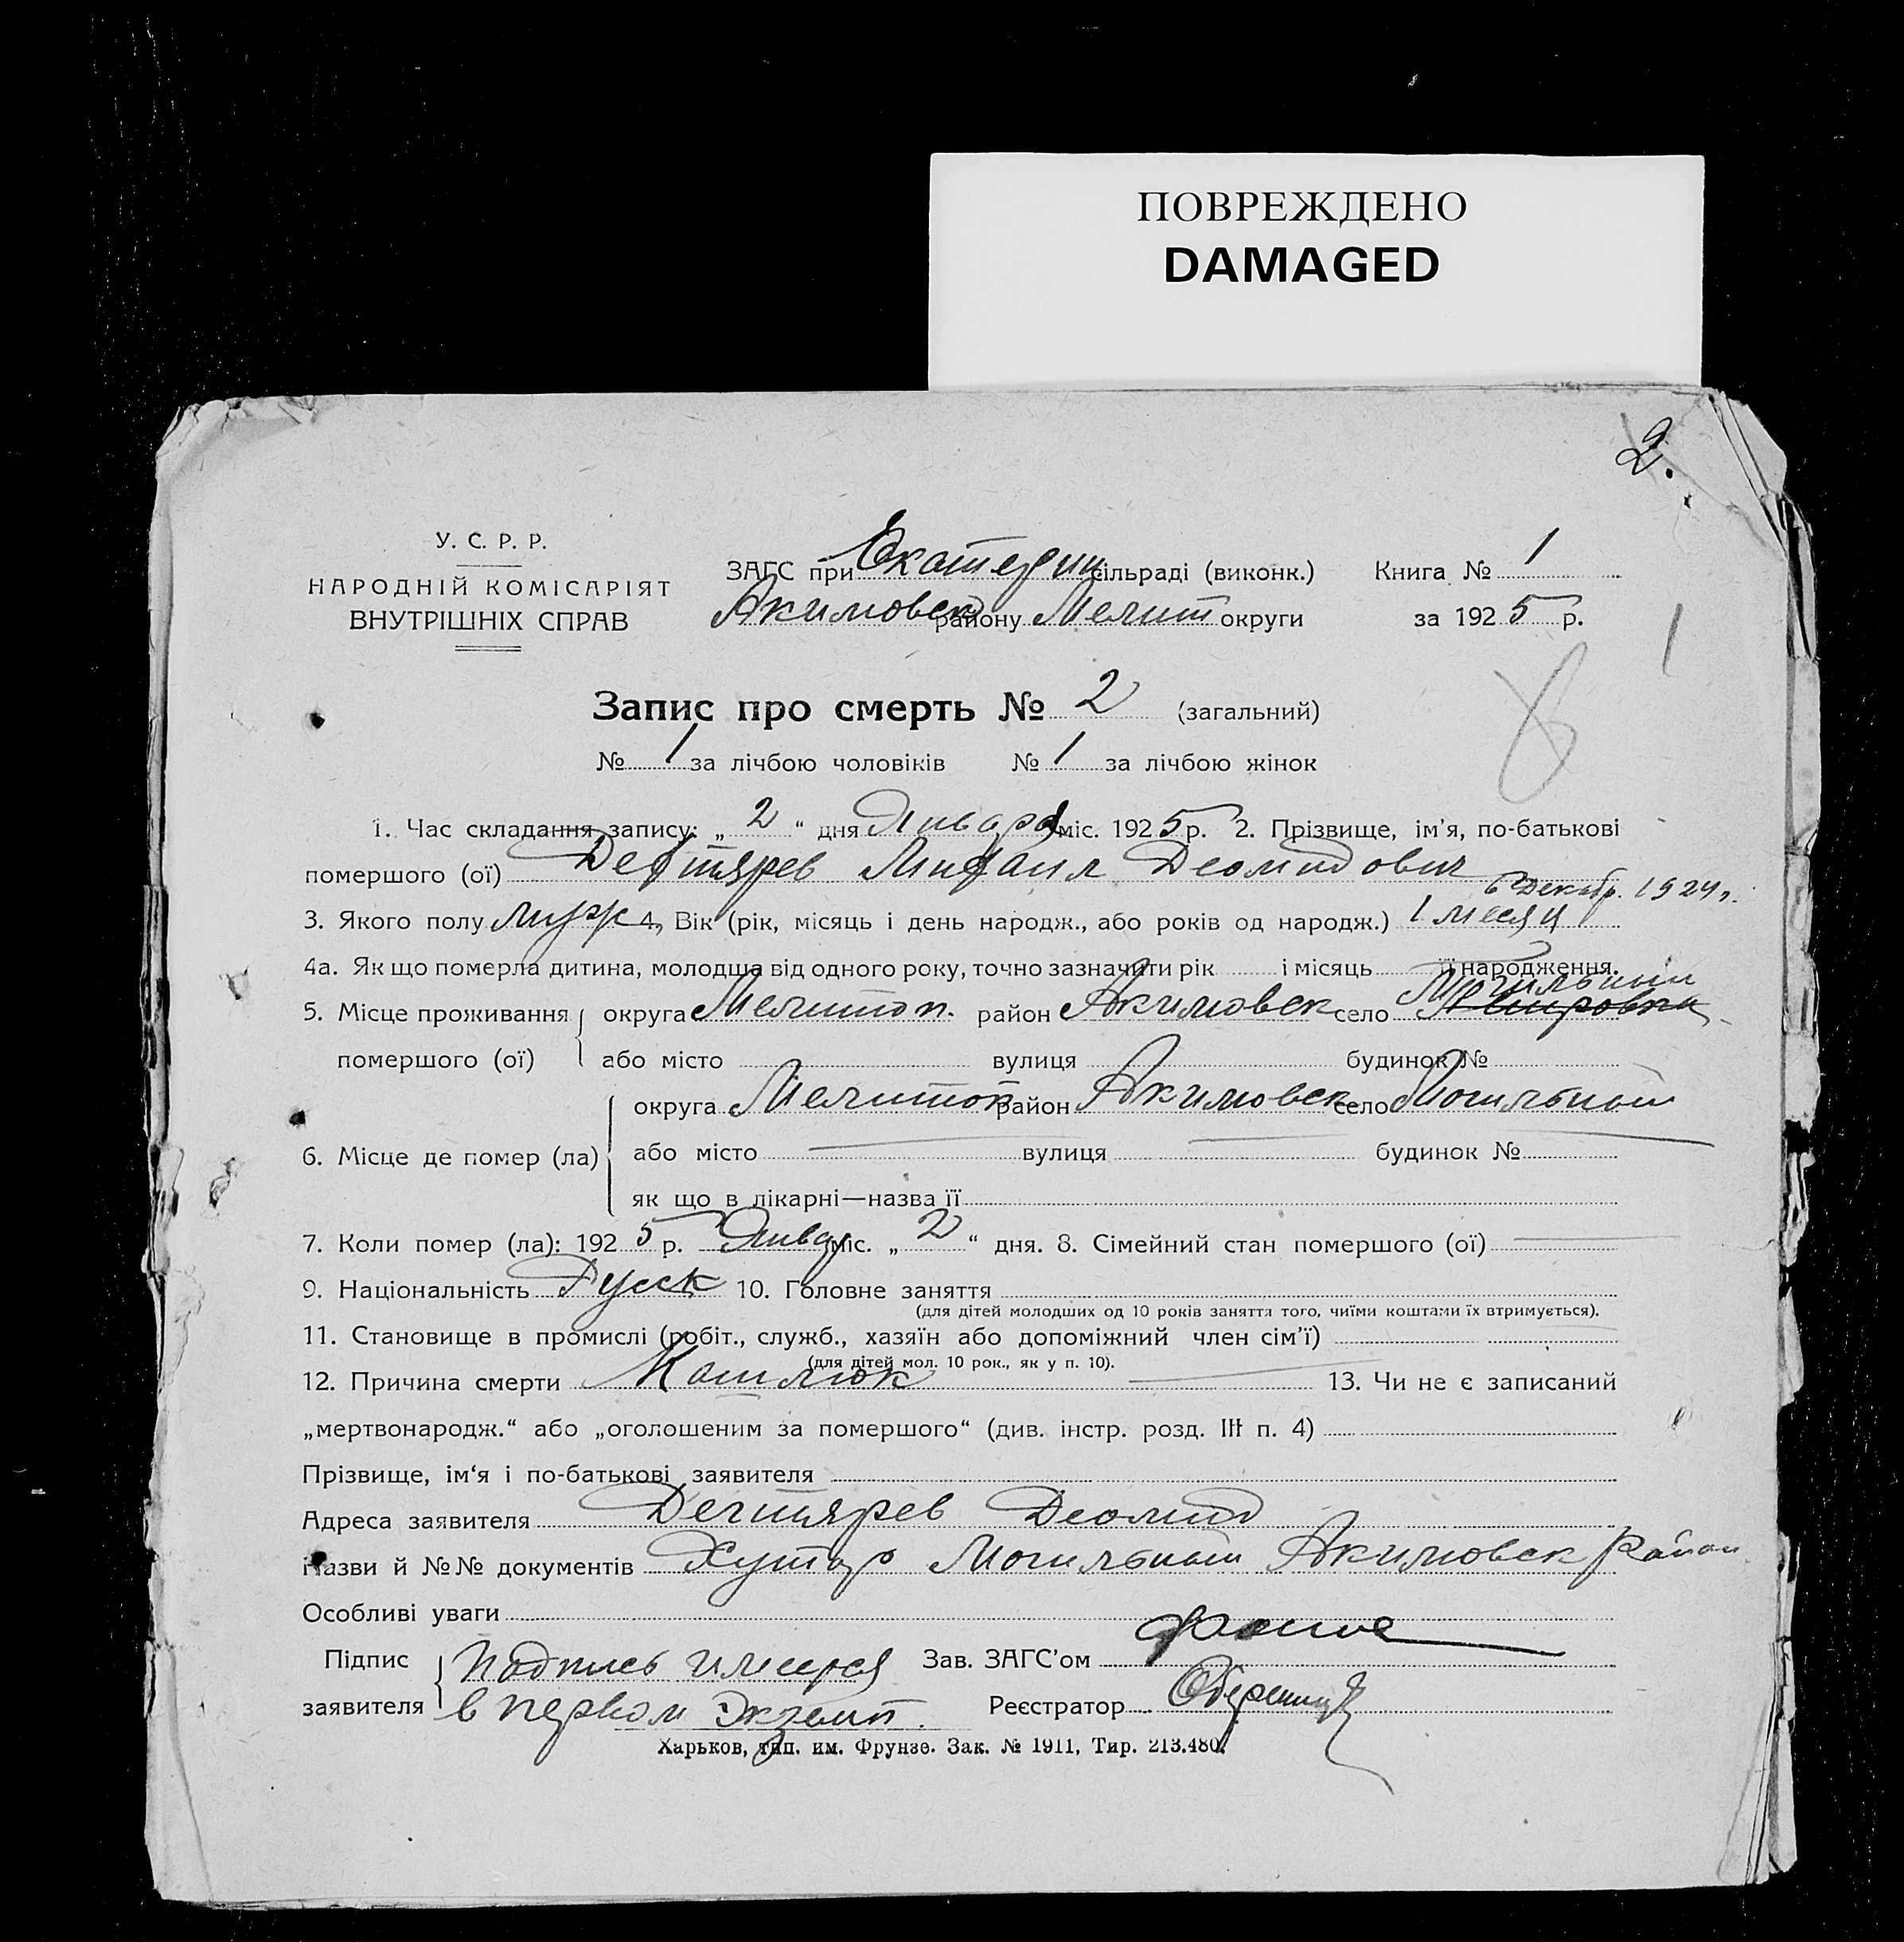 ПОВРЕЖДЕНО
DAMAGED
2.
У. С. Р. Р.
НАРОДНІЙ КОМІСАРІЯТ
ВНУТРІШНІХ СПРАВ
ЗАГС при Екатерин сільраді (виконк.) Книга № 1
Акимовск району Мелит округи за 1925 р.
1
Запис про смерть № 2 (загальний)
№ 1 за лічбою чоловіків № 1 за лічбою жінок
1. Час складання запису: „ 2 “ дня Января міс. 1925 р. 2. Прізвище, ім'я, по-батькові
помершого (ої) Дегтярев Михаил Деомидович
6 Декабр. 1924 г.
3. Якого полу муж 4. Вік (рік, місяць і день народж., або років од народж.) 1 месяц
4а. Як що померла дитина, молодша від одного року, точно зазначити рік і місяць її народження.
5. Місце проживання округа Мелитоп. район Акимовск село Могильный
помершого (ої) або місто вулиця будинок №
округа Мелитоп район Акимовск село Могильный
6. Місце де помер (ла) або місто вулиця будинок №
як що в лікарні—назва її
7. Коли помер (ла): 1925 р. Январ міс. „ 2 “ дня. 8. Сімейний стан помершого (ої)
9. Національність Русск 10. Головне заняття
(для дітей молодших од 10 років заняття того, чиїми коштами їх втримується).
11. Становище в промислі (робіт., служб., хазяїн або допоміжний член сім'ї)
(для дітей мол. 10 рок., як у п. 10).
12. Причина смерти Кашлюк 13. Чи не є записаний
„мертвонародж.“ або „оголошеним за помершого“ (див. інстр. розд. III п. 4)
Прізвище, ім'я і по-батькові заявителя
Адреса заявителя Дегтярев Деомид
Назви й №№ документів Хутор Могильный Акимовск Район
Особливі уваги
Підпис Подпись имеется Зав. ЗАГС'ом
заявителя в первом Экземп. Реєстратор
Харьков, тип. им. Фрунзе. Зак. № 1911, Тир. 213.480.